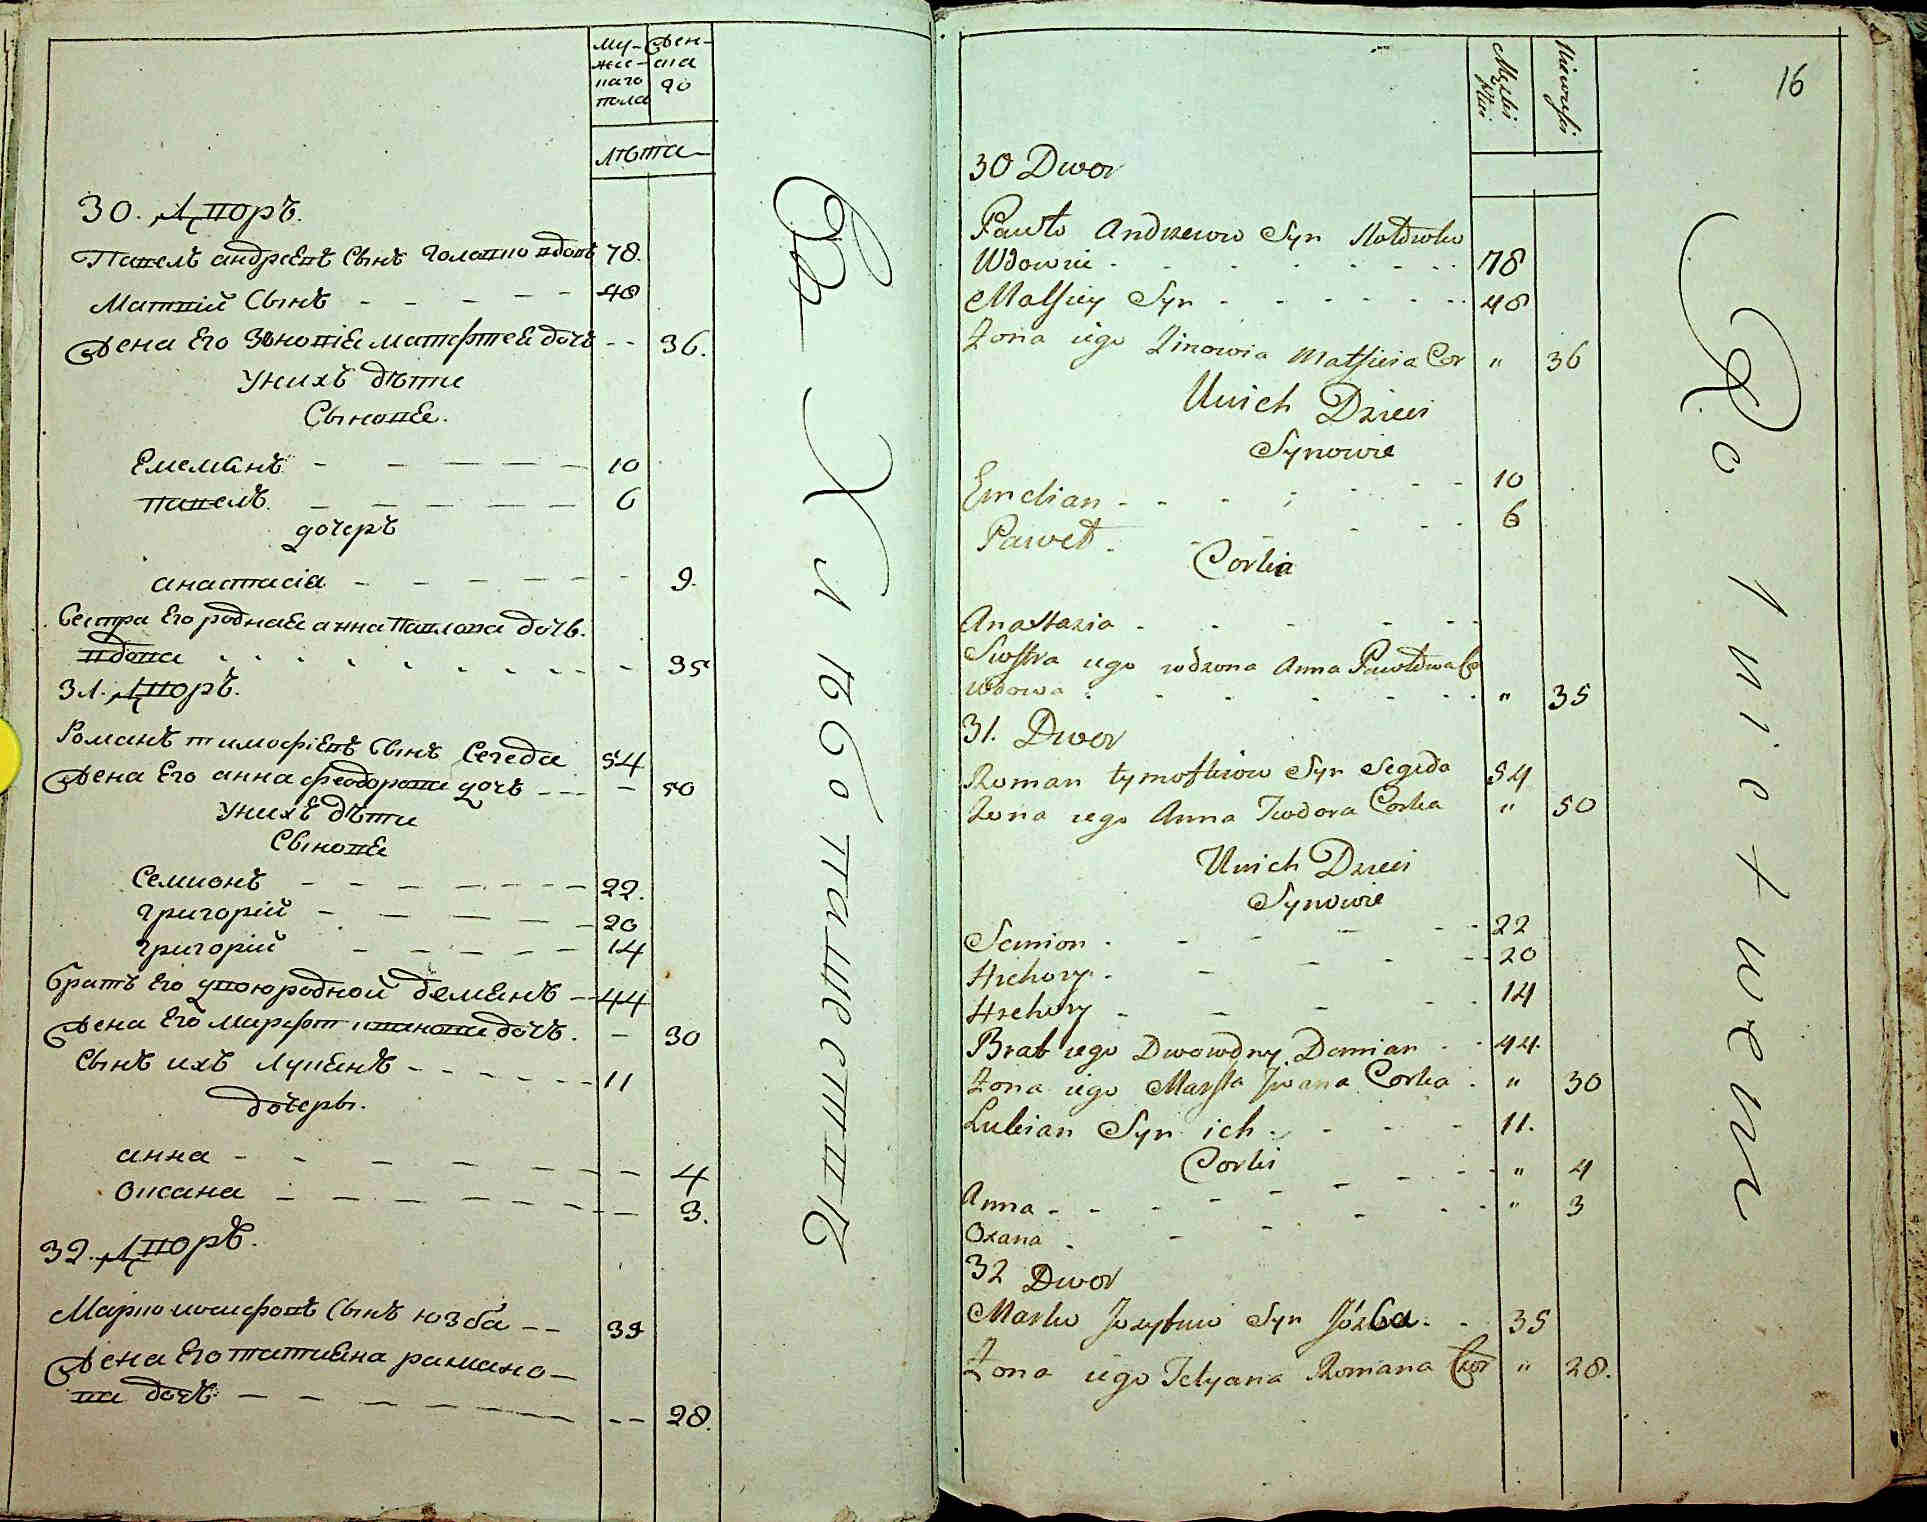 му- Жен-
жес- ска
каго го
пола
лѣта
30. Дворъ.
Павелъ андреевъ сынъ головко вдовъ 78.
Матвій сынъ - - - - - 48
Жена его Зѣновія матфтея дочь -- 36.
У нихъ дѣти
Сынове.
Емелянъ - - - - - 10
павелъ. - - - - - 6
дочеръ
анастасія - - - - - - 9.
Сестра его родная анна Павлова дочь.
вдова - - - - - - - - - 35
31. Дворъ.
Романъ тимофіевъ сынъ Сегеда 54
Жена Его анна феодорова дочь --- - 50
У нихъ дѣти
Сынове
Семионъ - - - - - - - 22.
григорій - - - - - 20
григорій - - - - - 14
братъ Его двоюродной демянъ - 44
Жена Его Марфт иванова дочь. - 30
Сынъ ихъ Лукянъ - - - - - - 11
дочеры.
анна - - - - - - - - 4
Оксана - - - - - - - - 3.
32. Дворъ.
Марко иосифовъ сынъ юзба -- 39
Жена Его татияна рамано-
ва дочь - - - - - - - -- 28.
Павшестівъ
16
Męskiej płci
Niewieści
30 Dwor
Pawło Andrzeiow Syn Hołowko
Wdowiec - - - - - - - 78
Matfiey Syn - - - - - - 48
Żona iego Zinowia Matfieia Cor " 36
U nich Dzieci
Synowie
Emelian - - - - - - - 10
Paweł - - - - - 6
Corka
Anastazia - - - - - -
Siostra iego rodzona Anna Pawłowa Co
Wdowa - - - - - - - " 35
31. Dwor
Roman tymofiiow Syn Segeda 54
Żona iego Anna Teodora Corka " 50
U nich Dzieci
Synowie
Semion - - - - - - 22
Hrehory - - - - - 20
Hrehory - - - - - 14
Brat iego Dwowdny Demian - - 44.
Żona iego Marfta Iwana Corka - " 30
Lukian Syn ich - - - - 11.
Corki
Anna - - - - - - - - " 4
Oxana - - - - - - " 3
32 Dwor
Marko Jozyfow Syn Józba - - 35
Żona iego Tetyana Romana Cor " 28.